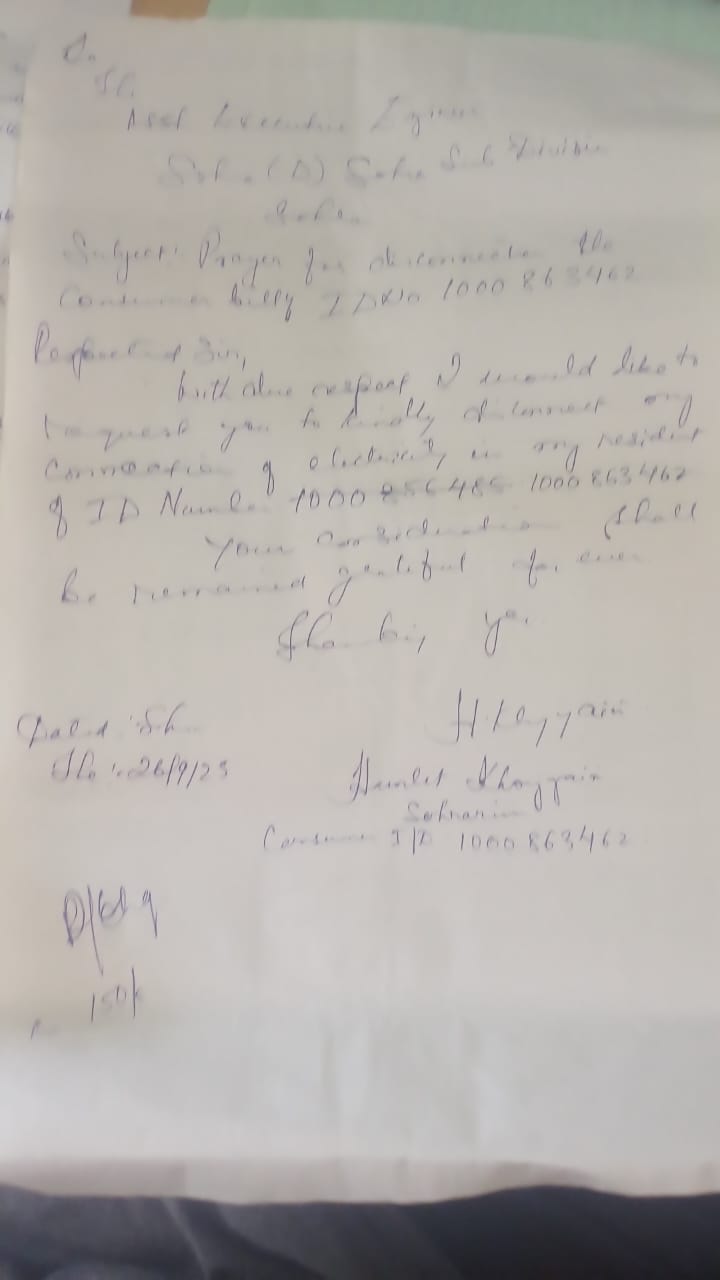 To,
The
Asst Executive Engineer
Sohra (D) Sohra Sub Division
Sohra
Subject: Prayer for disconnection the
Consumer billy ID No 1000 863462
Respected Sir,
With due respect I would like to
request you to kindly disconnect my
connection of electricity in my resident
of ID Number 1000 856485 1000 863462
Your consideration shall
be remained grateful for ever
Thanking you
Dated: Sohra
The: 26/9/23
H Khongjain
Hamlet
Consumer I/D 1000 863462